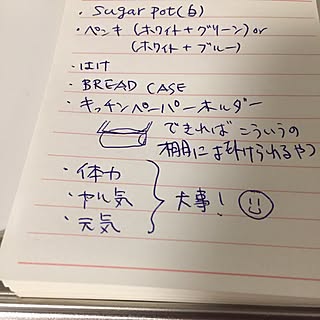 ・sugar pot(6)
・ペンキ (ホワイト+グリーン) or
(ホワイト+ブルー)
・はけ
・BREAD CASE
・キッチンペーパーホルダー
できればこういうの
棚にはかけられるやつ
・体力
・ヤル気
・元気
大事!